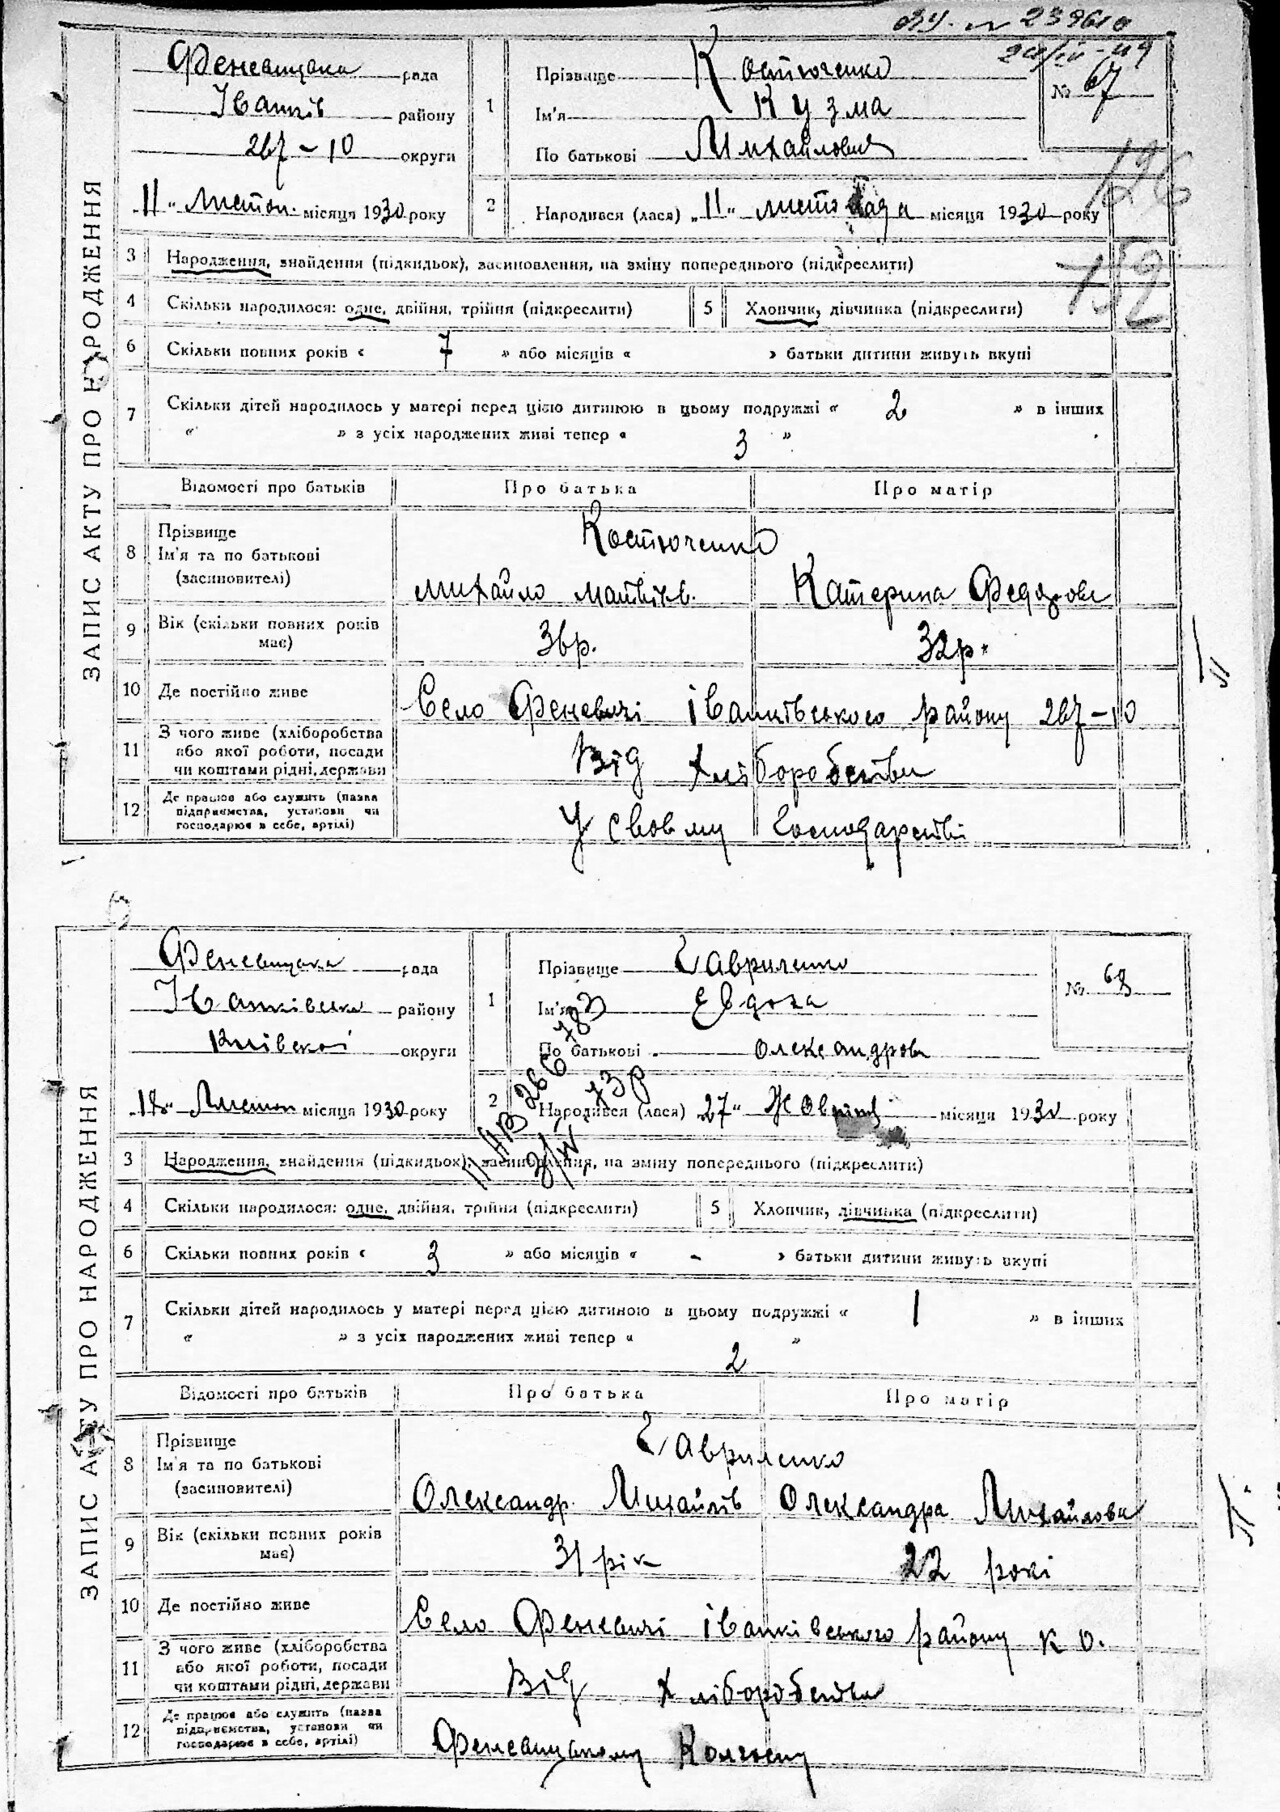 239610
67
Феневицька рада
Іванків району
267-10 округи
"11" Листоп. місяця 1930 року
1
Прізвище Костюченко
Ім'я Кузма
По батькові Михайлович
№ 67
126
152
2 Народився (лася) "11" листопада місяця 1930 року
ЗАПИС АКТУ ПРО НАРОДЖЕННЯ
3 Народження, знайдення (підкидьок), засиновлення, на зміну попереднього (підкреслити)
4 Скільки народилося: одне, двійня, трійня (підкреслити) 5 Хлопчик, дівчинка (підкреслити)
6 Скільки повних років « 7 » або місяців « » батьки дитини живуть вкупі
7 Скільки дітей народилось у матері перед цією дитиною в цьому подружжі « 2 » в інших
« » з усіх народжених живі тепер « 3 »
Відомості про батьків Про батька Про матір
8 Прізвище
Ім'я та по батькові
(засиновителі)
Костюченко
Михайло Матвіїв. Катерина Федорова
9 Вік (скільки повних років
має)
36р. 32р.
10 Де постійно живе Село Феневичі Іванківського району 267-10
11 З чого живе (хліборобства
або якої роботи, посади
чи коштами рідні, держави
Від хліборобства
12 Де працює або служить (назва
підприємства, установи чи
господарює в себе, артілі)
У своєму господарстві
Феневицька рада
Іванківська району
Київської округи
"18" Листоп місяця 1930 року
1
Прізвище Гавриленко
Ім'я Евдоха
По батькові Олександров
№ 68
2 Народився (лася) 27" Жовтня місяця 1930 року
ЗАПИС АКТУ ПРО НАРОДЖЕННЯ
3 Народження, знайдення (підкидьок), засиновлення, на зміну попереднього (підкреслити)
4 Скільки народилося: одне, двійня, трійня (підкреслити) 5 Хлопчик, дівчинка (підкреслити)
6 Скільки повних років « 3 » або місяців « - » батьки дитини живуть вкупі
7 Скільки дітей народилось у матері перед цією дитиною в цьому подружжі « 1 » в інших
« » з усіх народжених живі тепер « 2 »
Відомості про батьків Про батька Про матір
8 Прізвище
Ім'я та по батькові
(засиновителі)
Гавриленко
Олександр Михайлів Олександра Михайлова
9 Вік (скільки повних років
має)
31 рік 22 років
10 Де постійно живе Село Феневичі Іванківського району К О.
11 З чого живе (хліборобства
або якої роботи, посади
чи коштами рідні, держави
Від хліборобства
12 Де працює або служить (назва
підприємства, установи чи
господарює в себе, артілі)
Феневицькому Колгоспу